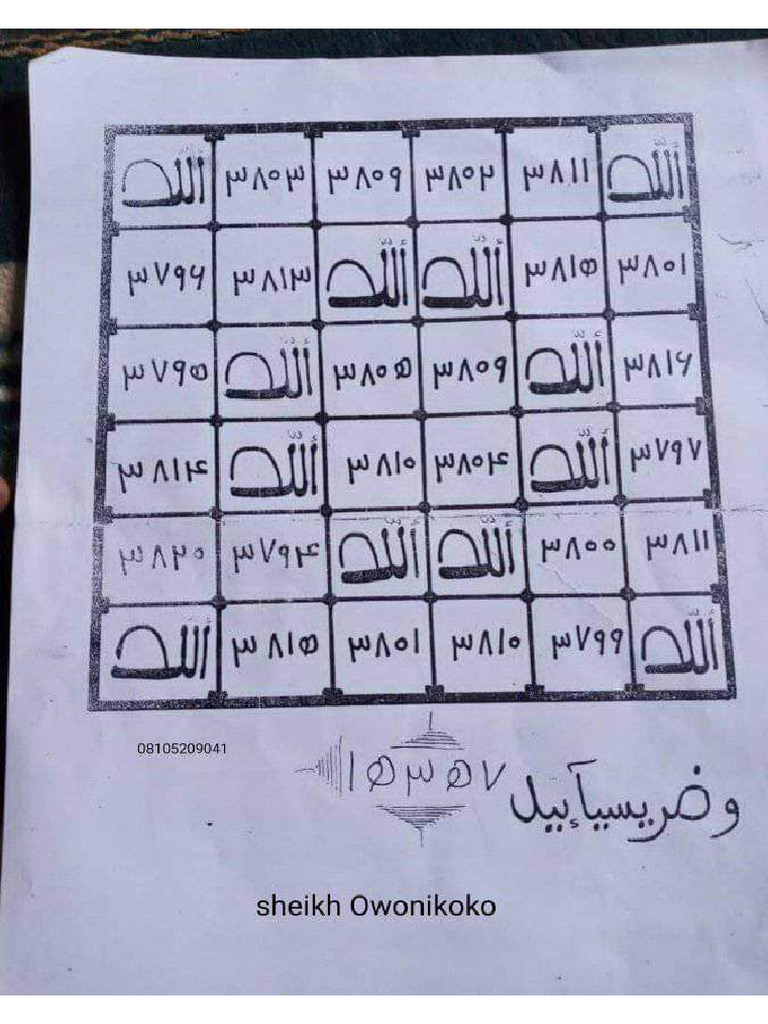 ألله ٣٨١١ ٣٨٠٢ ٣٨٠٩ ٣٨٠٣ ألله
٣٨٠١ ٣٨١٥ ألله ألله ٣٨١٣ ٣٧٩٦
٣٨١٦ ألله ٣٨٠٩ ٣٨٠٥ ألله ٣٧٩٥
٣٧٩٧ ألله ٣٨٠٤ ٣٨١٠ ألله ٣٨١٤
٣٨١١ ٣٨٠٠ ألله ألله ٣٧٩٤ ٣٨٢٠
ألله ٣٧٩٩ ٣٨١٠ ٣٨٠١ ٣٨١٥ ألله
08105209041
وضريسيآإييل ١٥٣٥٧
sheikh Owonikoko